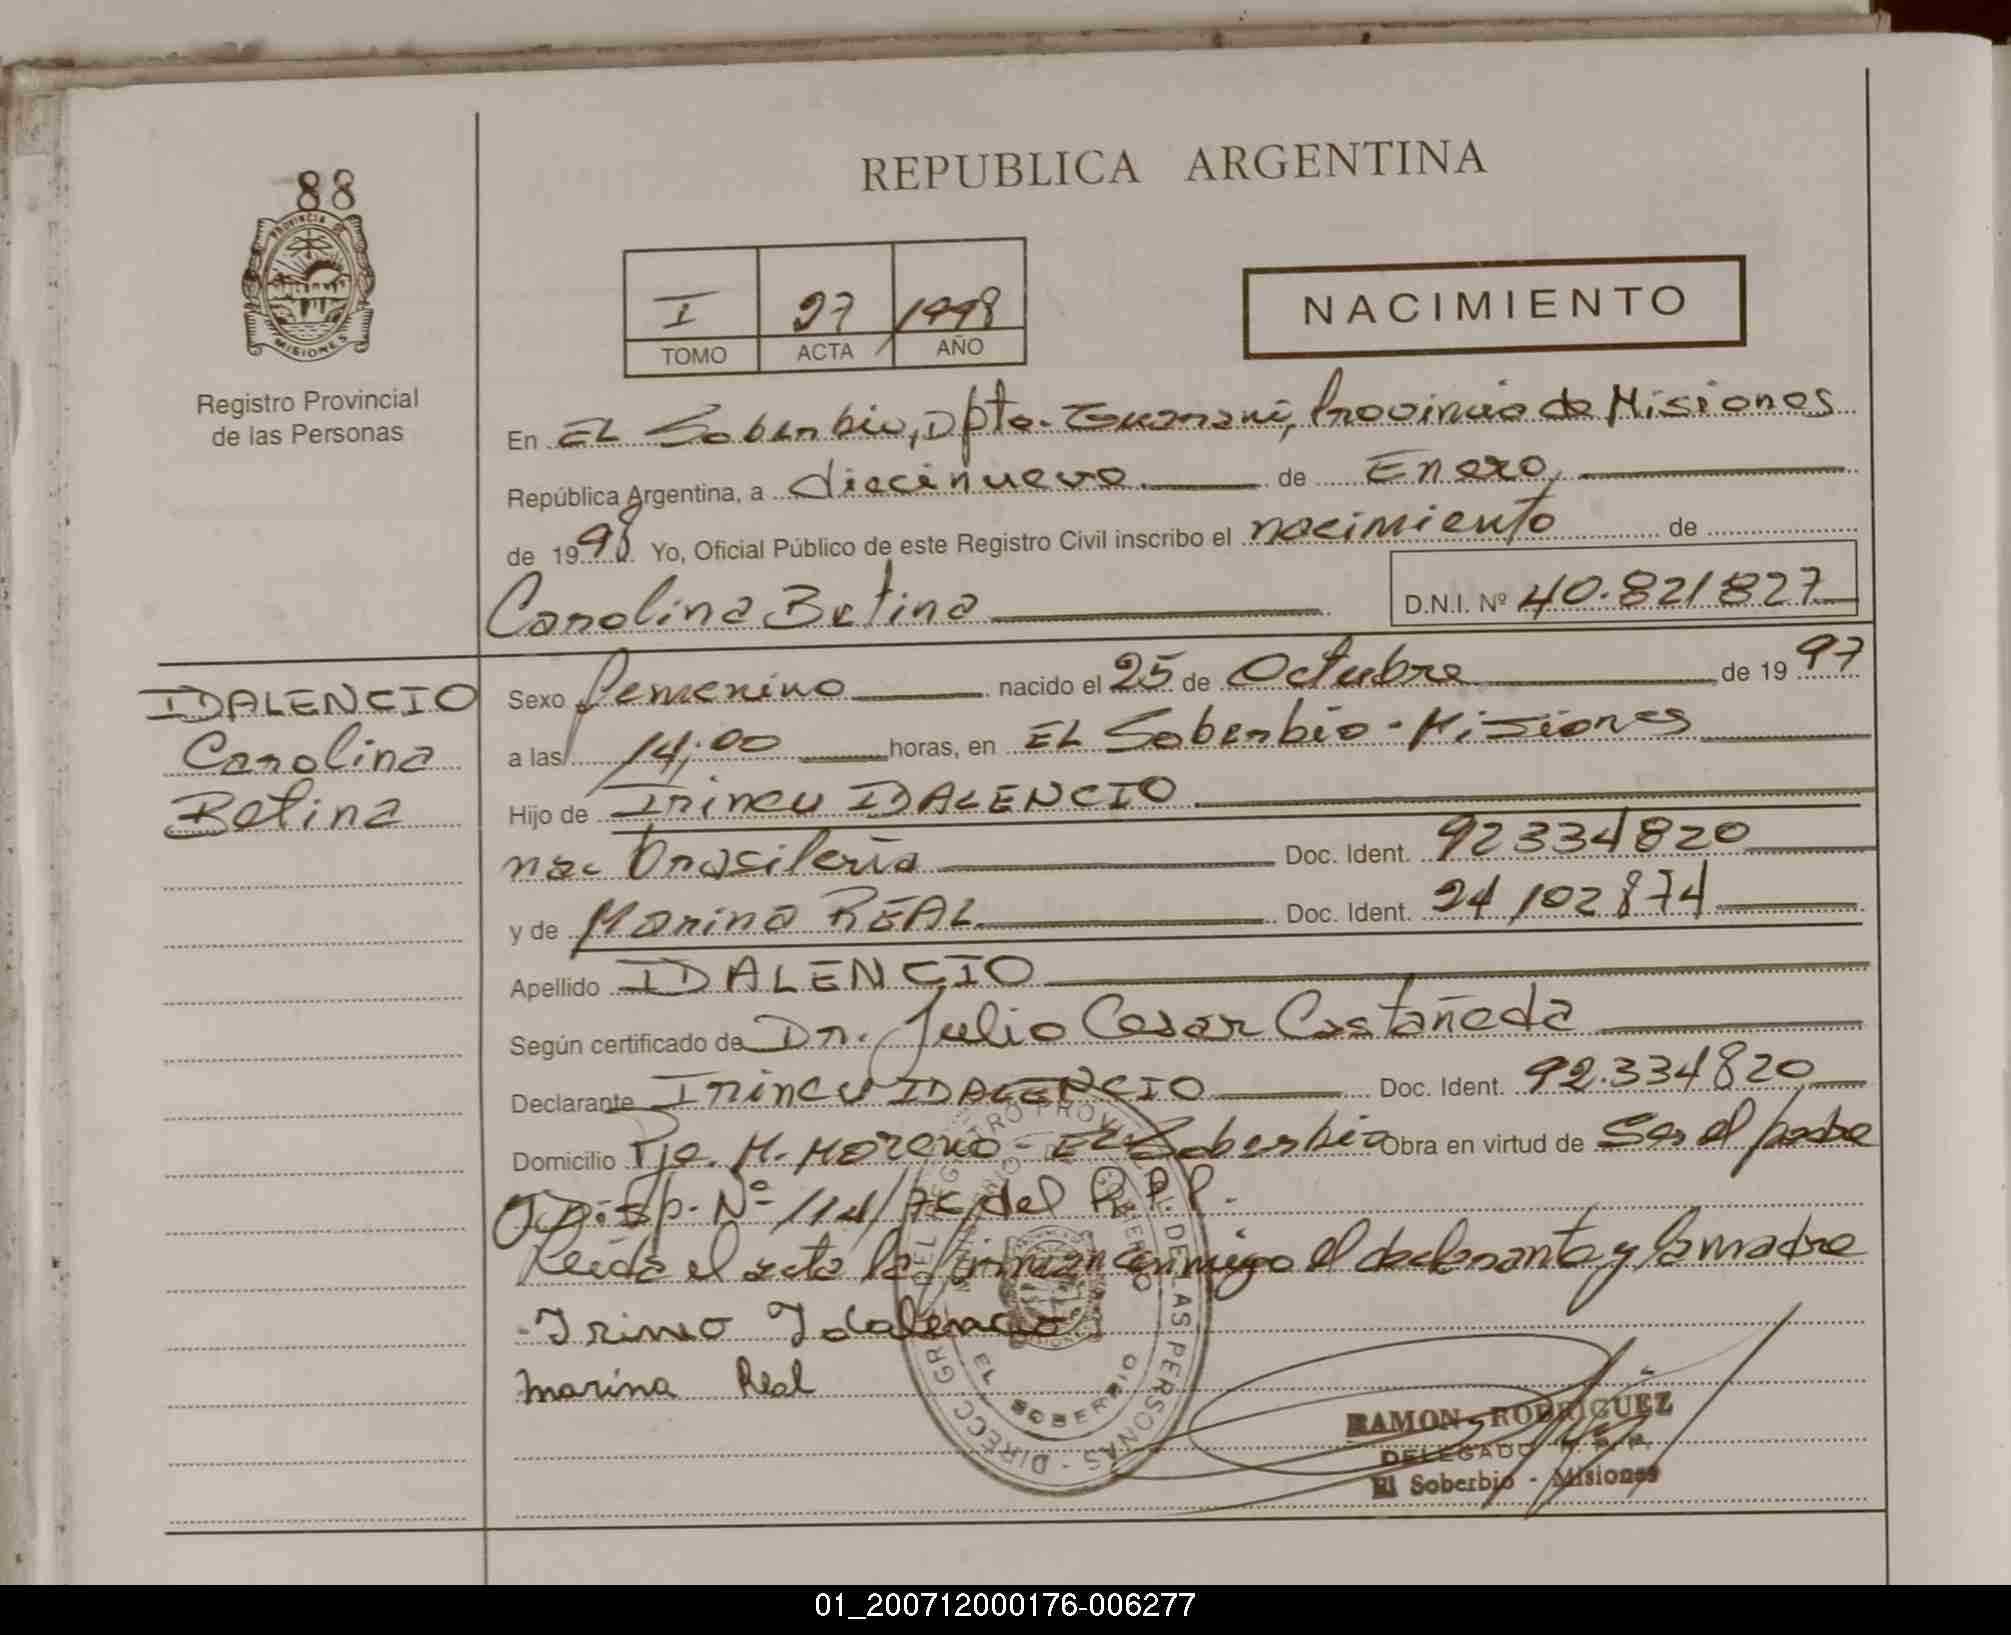 88
PROVINCIA DE
MISIONES
Registro Provincial
de las Personas
REPUBLICA ARGENTINA
I 97 1998
TOMO ACTA AÑO
NACIMIENTO
En EL Soberbio, Dpto. Guarani, Provincia de Misiones
República Argentina, a diecinueve de Enero,
de 1998. Yo, Oficial Público de este Registro Civil inscribo el nacimiento de
Carolina Betina D.N.I. Nº 40.821827
IDALENCIO
Carolina
Betina
Sexo femenino nacido el 25 de Octubre de 1997
a las 14:00 horas, en EL Soberbio - Misiones
Hijo de Irineu IDALENCIO
nac brasileria Doc. Ident. 92334820
y de Marina REAL Doc. Ident. 24,102874
Apellido IDALENCIO
Según certificado de Dr. Julio Cesar Castañeda
Declarante Irineu IDALENCIO Doc. Ident. 92.334820
Domicilio Pje. M. Moreno - EL Soberbio Obra en virtud de Ser el padre
Disp. Nº 114/ del R.P.P.
Leida el acta la firman conmigo el declarante y la madre
Irineo Idalencio
marina Real
DIRECC GRAL DEL REGISTRO PROVINCIAL DE LAS PERSONAS
EL SOBERBIO
RAMON RODRIGUEZ
DELEGADO R. P. P.
El Soberbio - Misiones
01_200712000176-006277